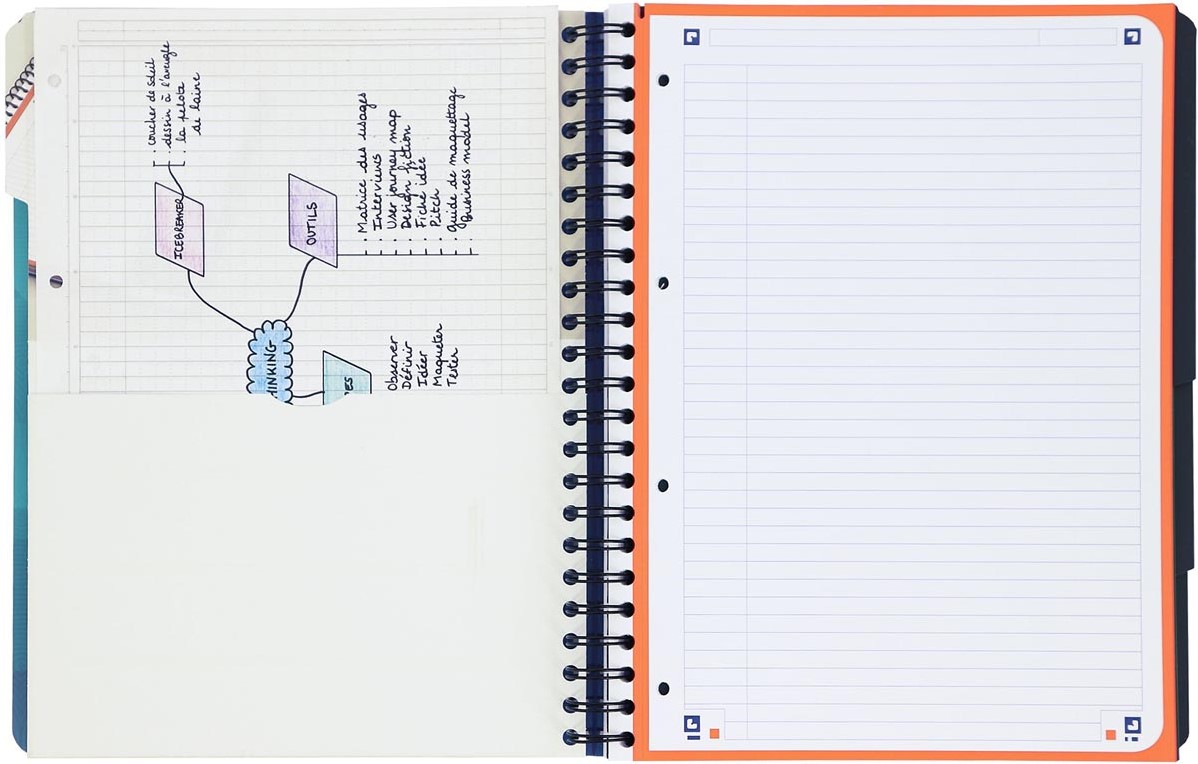 ICEBREAKER
dessin à l'aveugle
de laine
INKING
OUTILS
. Matrice des usages
. Interviews
. User journey map
. Design fiction
. Fiche idée
. Pitch
. guide de maquettage
. Business model
ES
Observer
Définir
Idéer
Maquetter
Tester